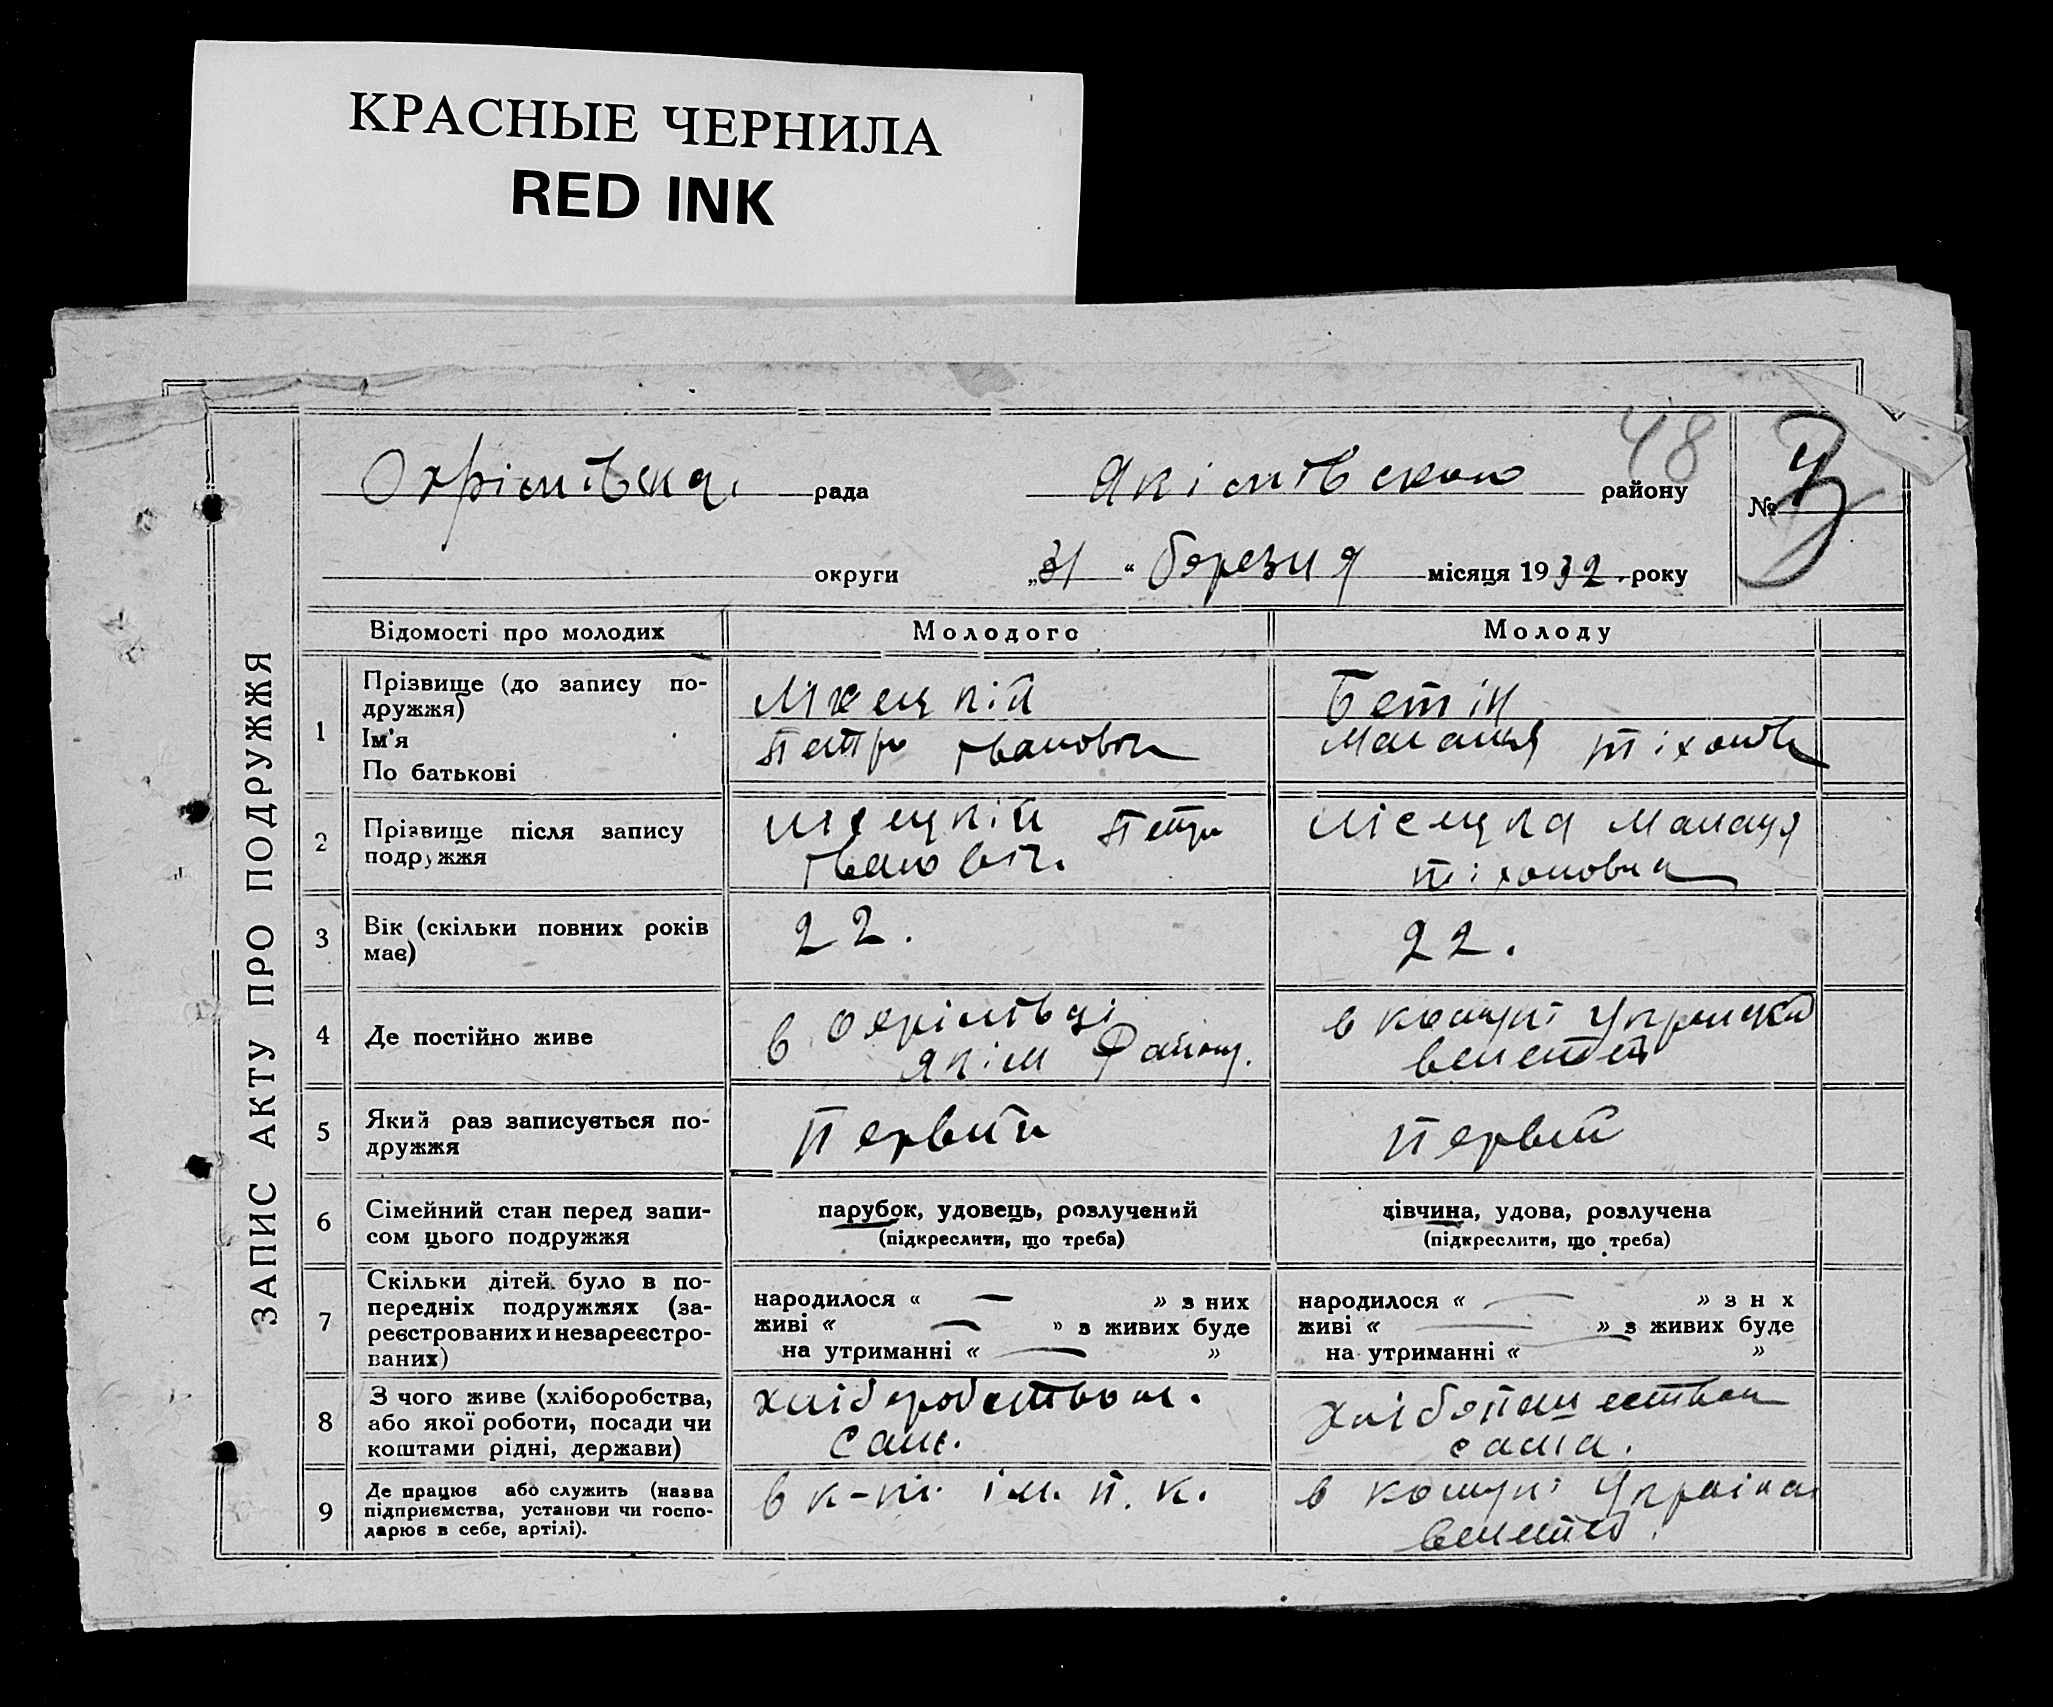 КРАСНЫЕ ЧЕРНИЛА
RED INK
48
Охрімівська рада Якімівського району №
округи „31“ березня місяця 1932 року
ЗАПИС АКТУ ПРО ПОДРУЖЖЯ
Відомості про молодих Молодого Молоду
1 Прізвище (до запису по-
дружжя)
Ім'я
По батькові
Петро Івановіч
Бетін
Маланія Тіхонов
2 Прізвище після запису
подружжя
Петро
Івановіч.
Маланія
Тіхоновна
3 Вік (скільки повних років
має)
22.
22.
4 Де постійно живе
в Охрімівці
Якім району.
в комуні
5 Який раз записується по-
дружжя
Первий
Первий
6 Сімейний стан перед запи-
сом цього подружжя
парубок, удовець, розлучений
(підкреслити, що треба)
дівчина, удова, розлучена
(підкреслити, що треба)
7 Скільки дітей було в по-
передніх подружжях (за-
реєстрованих и незареєстро-
ваних)
народилося « — » з них
живі « — » з живих буде
на утриманні « — »
народилося « — » з н х
живі « — » з живих буде
на утриманні « — »
8 З чого живе (хліборобства,
або якої роботи, посади чи
коштами рідні, держави)
хліборобством.
сам.
сама.
9 Де працює або служить (назва
підприємства, установи чи госпо-
дарює в себе, артілі).
в к-пі. ім. П. К.
в комуні